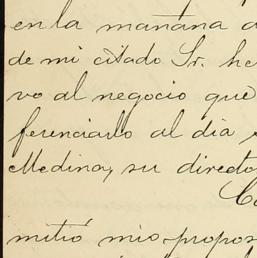 en la mañana
de mi citado Sr. he
vo al negocio que
ferenciarlo al dia
Medina, su directo
Co
mitió mis propos